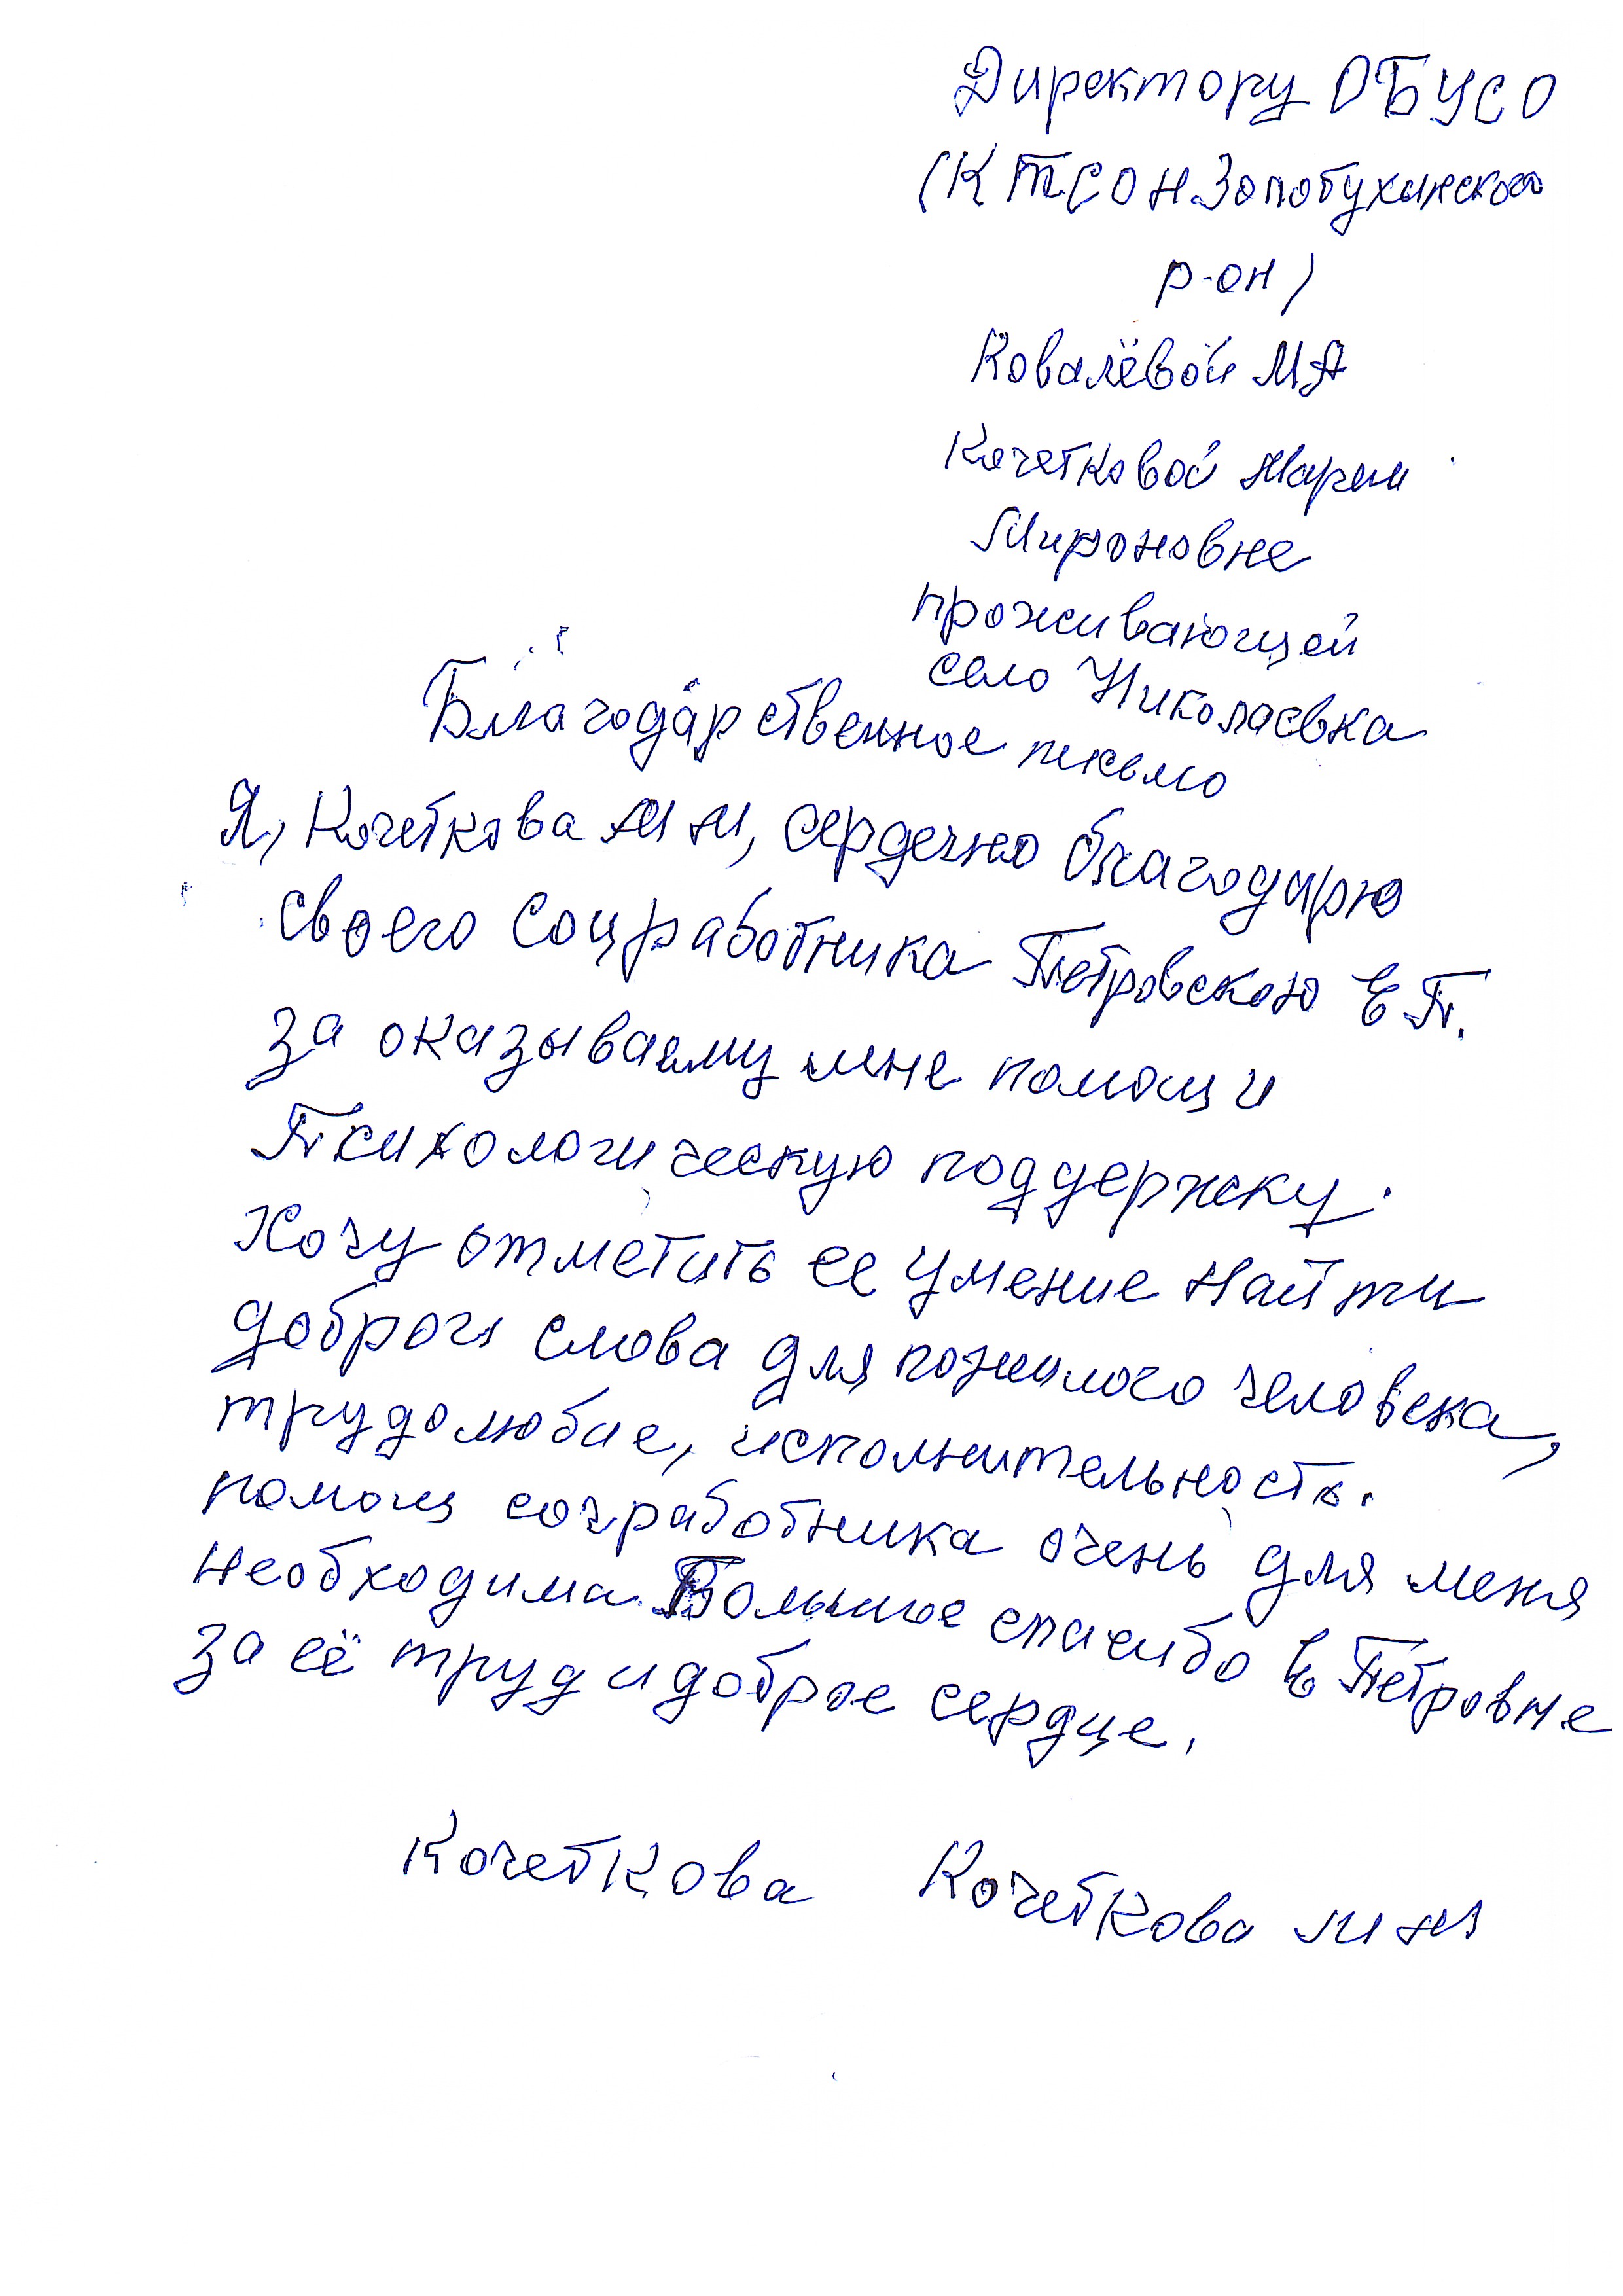 Директору ОБУСО
(КТСОН Золотухинского
р-он)
Ковалёвой МА
Кочетковой Марии
Мироновне
проживающей
село Николаевка
Благодарственное письмо
Я, Кочеткова М М, сердечно благодарю
своего соцработника Петровскою Е П.
за оказываему мне помощ и
Психологическую поддержку.
Хочу отметить ее умение найти
доброги слова для пожилого человека,
трудолюбие, исполнительность.
помощ соцработника очень для меня
необходима. Большое спасибо Е Петровне
за её труд и доброе сердце.
Кочеткова Кочеткова М М